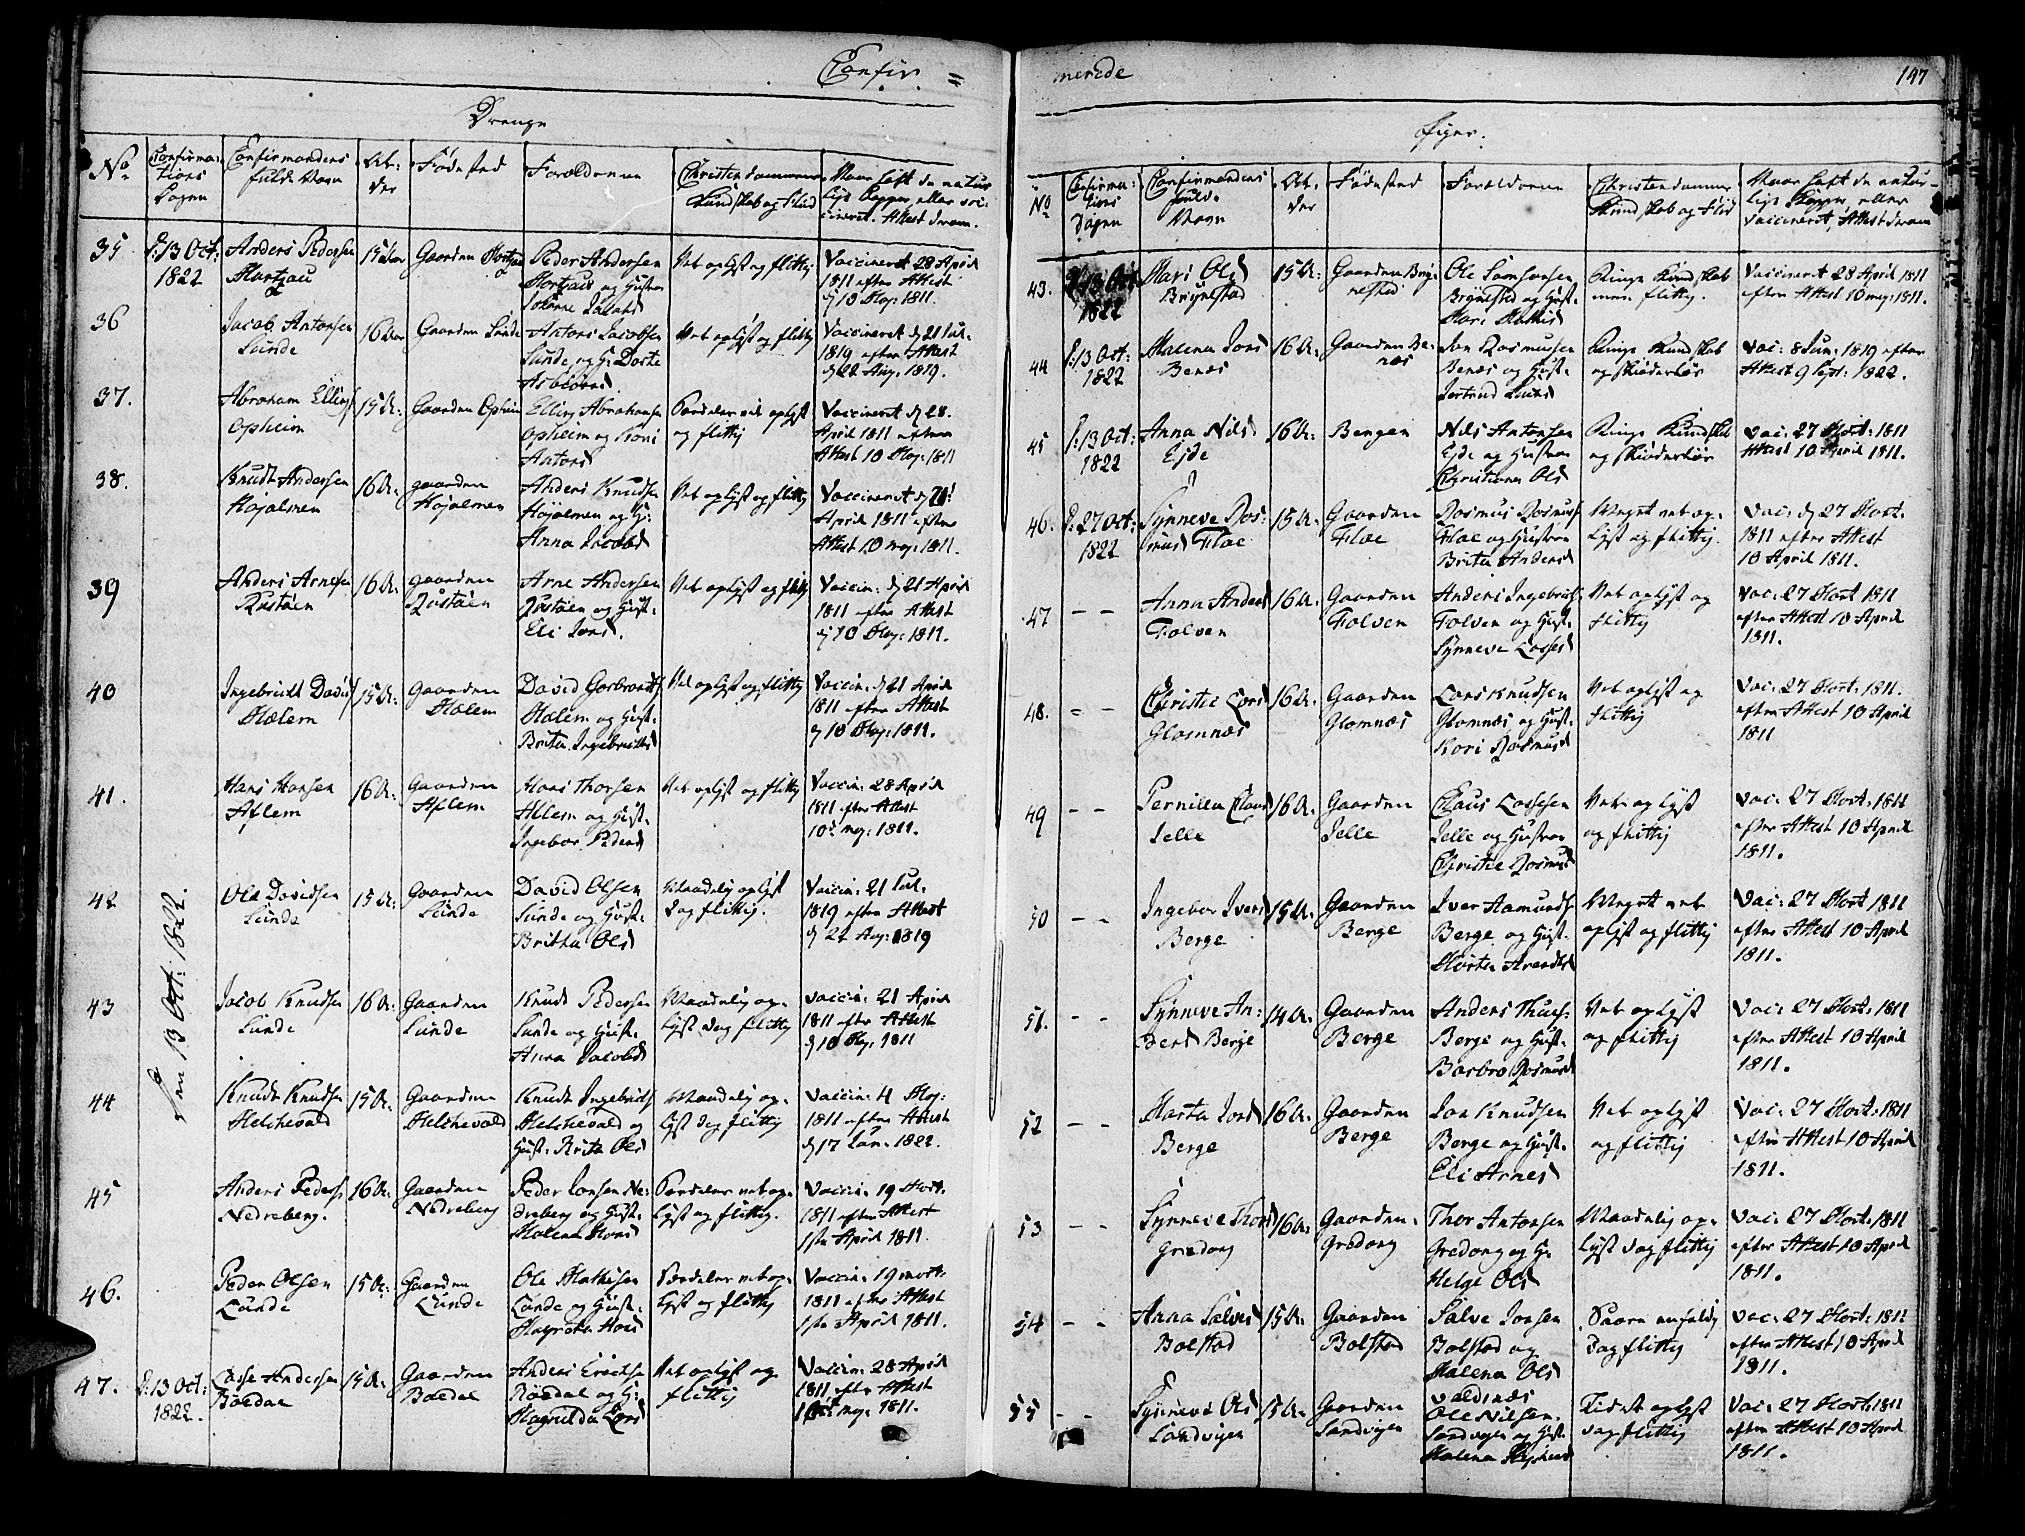 Confir = merede
197
Drenge
No
Confirma:
tions
Dagen
Confirmandens
fulde Navn
Al:
der
Fødested
Forældrene
Christendommens
Kundskab og Flid
35
d: 13 Oct:
1822
Anders Pedersen
15 Aar
Gaarden
Peder Andersen
og Hustr
Ret oplyst og flittig
Vaccineret 28 April
1811 efter Attest
10 May: 1811.
36
Jacob Antonsen
Sunde
16 Aar
Gaarden Sunde
Antoni Jacobsen
Sunde og H: Dorte
Ret oplyst og flittig
Vaccineret d 21 Jul.
1819 efter Attest
d 22 Aug: 1819.
37.
Abraham Ellings
Opheim
15 A:
Gaarden Opheim
Elling Abrahamsen
Opheim og Kari
Antonsd
og flittig
Vaccineret d 28.
April 1811 efter
Attest 10 May: 1811
38.
Knudt Andersen
Hojalmen
16 A:
gaarden
Hojalmen
Anders Knudsen
Hojalmen og H:
Anna Jacobsd
Ret oplyst og flittig
Vaccineret d 21
April 1811 efter
Attest 10 may: 1811.
39
Anders Arnesen
Rustøen
16 A:
gaarden
Rustøen
Arne Andersen
Rustøen og Hust:
Eli Jonsd.
Ret oplyst og flittig
Vaccin: d 21 April
1811 efter Attest
d 10 May: 1811.
40
Ingebricht Davids
Mælem
15 A:
Gaarden
Mælem
David Gerbrandts
Mælem og Hust:
Britta Ingebrichtsd
Ret oplyst og flittig
Vaccin: d 21 April
1811 efter Attest
d 10 May: 1811.
41.
Hans Hansen
Aflem
16 A:
Gaarden
Aflem
Hans Thorsen
Aflem og Hust:
Ingebor Pedersd
Ret oplyst og flittig
Vaccin: 28 April
1811 efter Attest
10 may: 1811.
42
Ole Davidsen
Sunde
15 A:
Gaarden
Sunde
David Olsen
Sunde og Hust:
Britha Olsd
Maadelig oplyst
dog flittig.
Vaccin: 21 Jul.
1819 efter Attest
d 22 Aug: 1819
Den 13 Oct: 1822.
43
Jacob Knudsen
Sunde
16 A:
Gaarden
Sunde
Knudt Pedersen
Sunde og Hust:
Anna Jacobsd
Maadelig op-
lyst dog flittig
Vaccin: 21 April
1811 efter Attest
d 10 May: 1811
44
Knudt Knudsen
Helshevald
15 A:
Gaarden
Helshevald
Knudt Ingebrichts
Helshevald og
Hust: Brita Olsd
Maadelig op-
lyst dog flittig
Vaccin: 4 May:
1811 efter Attest
d 17 Jan: 1822.
45
Anders Peders:
Nedreberg.
16 A:
Gaarden
Nedreberg
Peder Jonsen Ne-
dreberg og Hust:
Malena Monsd
Særdeles vel op-
lyst og flittig.
Vaccin: 19 Mart:
1811 efter Attest
1ste April 1811.
46.
Peder Olsen
Lunde
15 A:
Gaarden
Lunde
Ole Mathisen
Lunde og Hust:
Magreta Hansd
Særdeles vel op-
lyst og flittig
Vaccin: 19 mart:
1811 efter Attest
1ste April 1811.
47.
d: 13 Oct:
1822.
Lasse Andersen
Bøedal
15 A:
Gaarden
Bøedal
Anders Erichsen
Bøedal og H:
Magnilda Larsd
Ret oplyst og
flittig
Vaccin: 28 April
1811 efter Attest
10 may: 1811.
Piger.
No
Confirma:
tions
Dagen
Confirmandens
fulde
Navn
Al:
der
Fødested
Forældrene
Christendommens
Kundskab og Flid
43.
d: 13 Oct
1822
Mari Olsd
Brynestad
15 A:
Gaarden Bry-
nestad
Ole Samsonsen
Brynestad og Hust:
Mari Mathisd
Ringe Kundskab
men flittig.
Vaccineret 28 April 1811
efter Attest 10 may: 1811.
44
d: 13 Oct:
1822
Malena Jonsd
Benæs
16 A:
Gaarden Be-
næs
Jon Rasmussen
Benæs og Hust:
Ringe Kundskab
og skiødesløs
Vac: 8 Jun: 1819 efter
Attest 9 Sept: 1822.
45
d: 13 Oct:
1822
Anna Nilsd
Ejde
16 A:
Bergen
Nils Antonsen
Ejde og Hustroe
Christiana Olsd
Ringe Kundskab
og skiødesløs
Vac: 27 Mart: 1811
Attest 10 April 1811.
46.
d: 27 Oct:
1822
Synneve Ras:
musd Floe
15 A:
Gaarden
Floe
Rasmus Rasmuss
Floe og Hustroe
Brita Andersd
Meget vel op-
lyst og flittig.
Vac: d 27 Mart:
1811 efter Attest
10 April 1811.
47
- -
Anna Andersd
Folven
16 A:
Gaarden
Folven
Anders Ingebrichts
Folven og Hust:
Synneve Lassesd
Ret oplyst og
flittig
Vac: 27 Mart 1811
efter Attest 10 April
1811.
48.
- -
Christie Larsd
Glomnæs
16 A:
Gaarden
Glomnæs
Lars Knudsen
Glomnæs og Hust:
Kari Rasmusd
Ret oplyst og
flittig
Vac: 27 Mart: 1811.
efter Attest 10 April
1811
49
- -
Pernilla Clausd
Jelle
16 A:
Gaarden
Jelle
Claus Lassesen
Jelle og Hustroe
Christie Rasmusd
Ret oplyst
og flittig
Vac: 27 Mart: 1811
efter Attest 10 April
1811.
50
- -
Ingebor Iversd
Berge
15 A:
Gaarden
Berge
Iver Aamunds
Berge og Hust:
Marta Arendtsd
Meget vel
oplyst og flittig
Vac: 27 Mart: 1811
efter Attest 10 April
1811.
51.
- -
Synneve An:
dersd Berge
14 A:
Gaarden
Berge
Anders Thues:
Berge og Hust:
Barbro Rasmusd
Ret oplyst
og flittig
Vac: 27 Mart: 1811
efter Attest 10 April
1811.
52
- -
Marta Jonsd
Berge
16 A:
Gaarden
Berge
Jon Knudsen
Berge og Hust:
Eli Arnesd
Ret oplyst
og flittig
Vac: 27 Mart: 1811
efter Attest 10 April
1811.
53
- -
Synneve Thorsd
Gredong
16 A:
Gaarden
Gredong
Thor Antonsen
Gredong og H:
Helge Olsd
Maadelig op-
lyst dog flittig
Vac: 27 Mart: 1811
efter Attest 10 April
1811.
54
- -
Anna Salvesd
Bolstad
15 A:
Gaarden
Bolstad
Salve Jonsen
Bolstad og
Malena Olsd
Saare eenfoldig
dog flittig
Vac: 27 Mart: 1811
efter Attest 10 April
1811.
55
- -
Synneve Olsd
Sandvigen
15 A:
Gaarden
Sandvigen
Valdnæs
Ole Nilsen
Sandvigen og Hust:
Malena
Lidet oplyst
dog flittig
Vac: 27 Mart: 1811
efter Attest 10 April
1811.